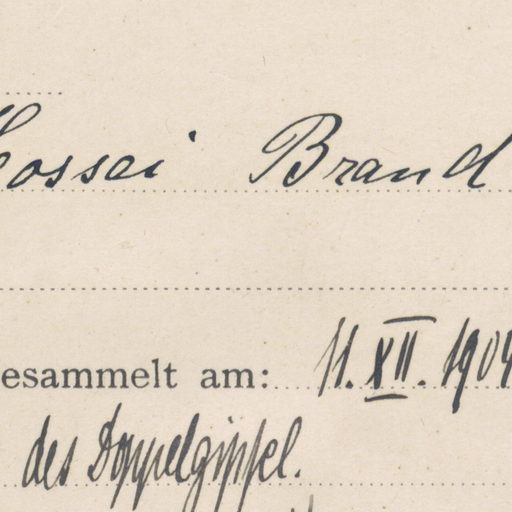 Kossai Brand
esammelt am: 11. XII. 1904
des Doppelgipfel.